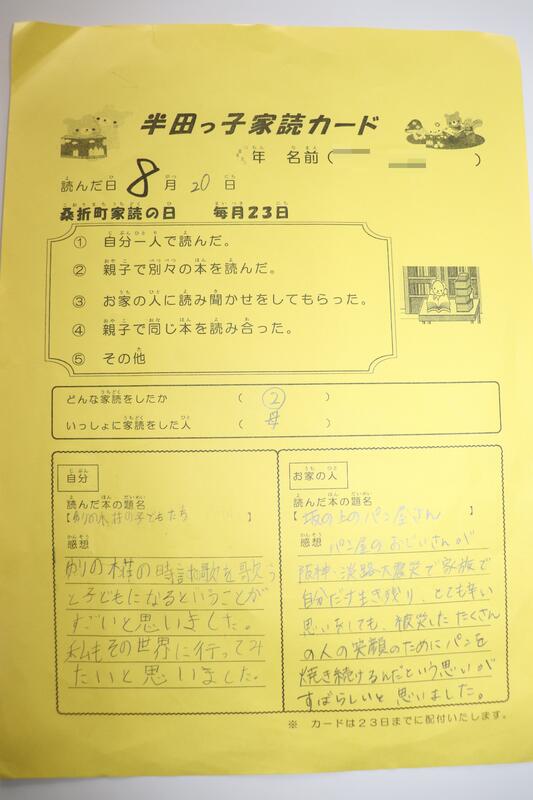 半田っ子家読カード
年 名前( )
読んだ日 8月 20日
桑折町家読の日 毎月23日
① 自分一人で読んだ。
② 親子で別々の本を読んだ。
③ お家の人に読み聞かせをしてもらった。
④ 親子で同じ本を読み合った。
⑤ その他
どんな家読をしたか ( ② )
いっしょに家読をした人 ( 母 )
自分
読んだ本の題名
【ゆりの木荘の子どもたち 】
感想
ゆりの木荘の時計が歌を歌う
と子どもになるということが
すごいと思いました。
私もその世界に行ってみ
たいと思いました。
お家の人
読んだ本の題名
【 坂の上のパン屋さん 】
感想 パン屋のおじいさんが
阪神・淡路大震災で家族で
自分だけ生き残り、とても辛い
思いをしても、被災したたくさん
の人の笑顔のためにパンを
焼き続けるんだという思いが
すばらしいと思いました。
※ カードは23日までに配付いたします。